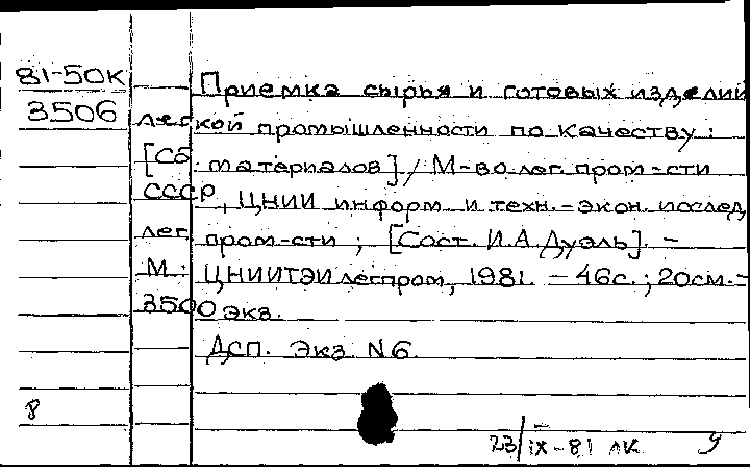 81-50к
3506
Приемка сырья и готовых изделий
легкой промышленности по качеству:
[Сб. материалов] / М-во лег. пром-сти
СССР, ЦНИИ информ. и техн.-экон. исслед.
лег. пром-сти ; [Сост. И.А. Дуэль]. -
М.: ЦНИИТЭИлегпром, 1981. - 46с.; 20см.-
3500 экз.
ДСП. Экз. N6.
8
23/IX-81 ЛК 9